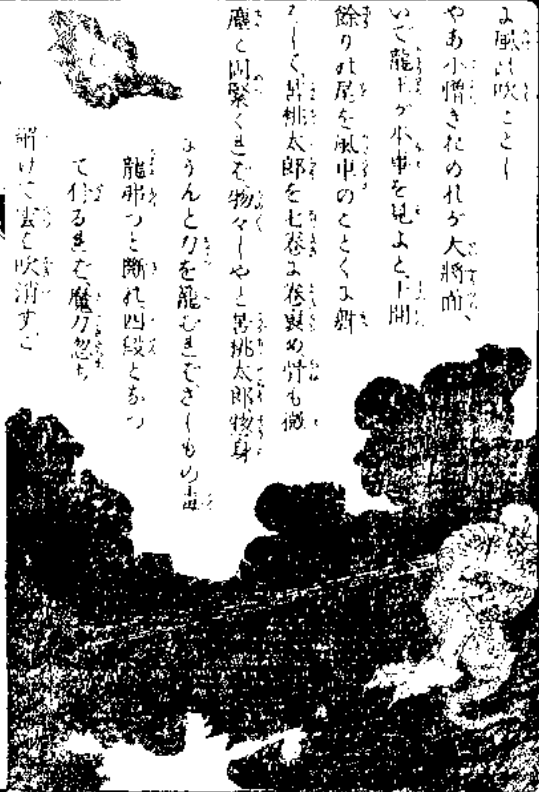 に風に吹ことし
やあ小憎きおのれが大將面、
いで龍王が本事を見よと、十間
餘りの尾を風車のごとくに舞
はし、苦桃太郎を七卷に卷裹め骨も微
塵と固緊くれば、物々しやと苦桃太郎、惣身
にうんと力を籠むれば、さしもの毒
龍弗つと斷れ、四段となつ
て仆るれば、魔力忽ち
解けて雲と吹消す、